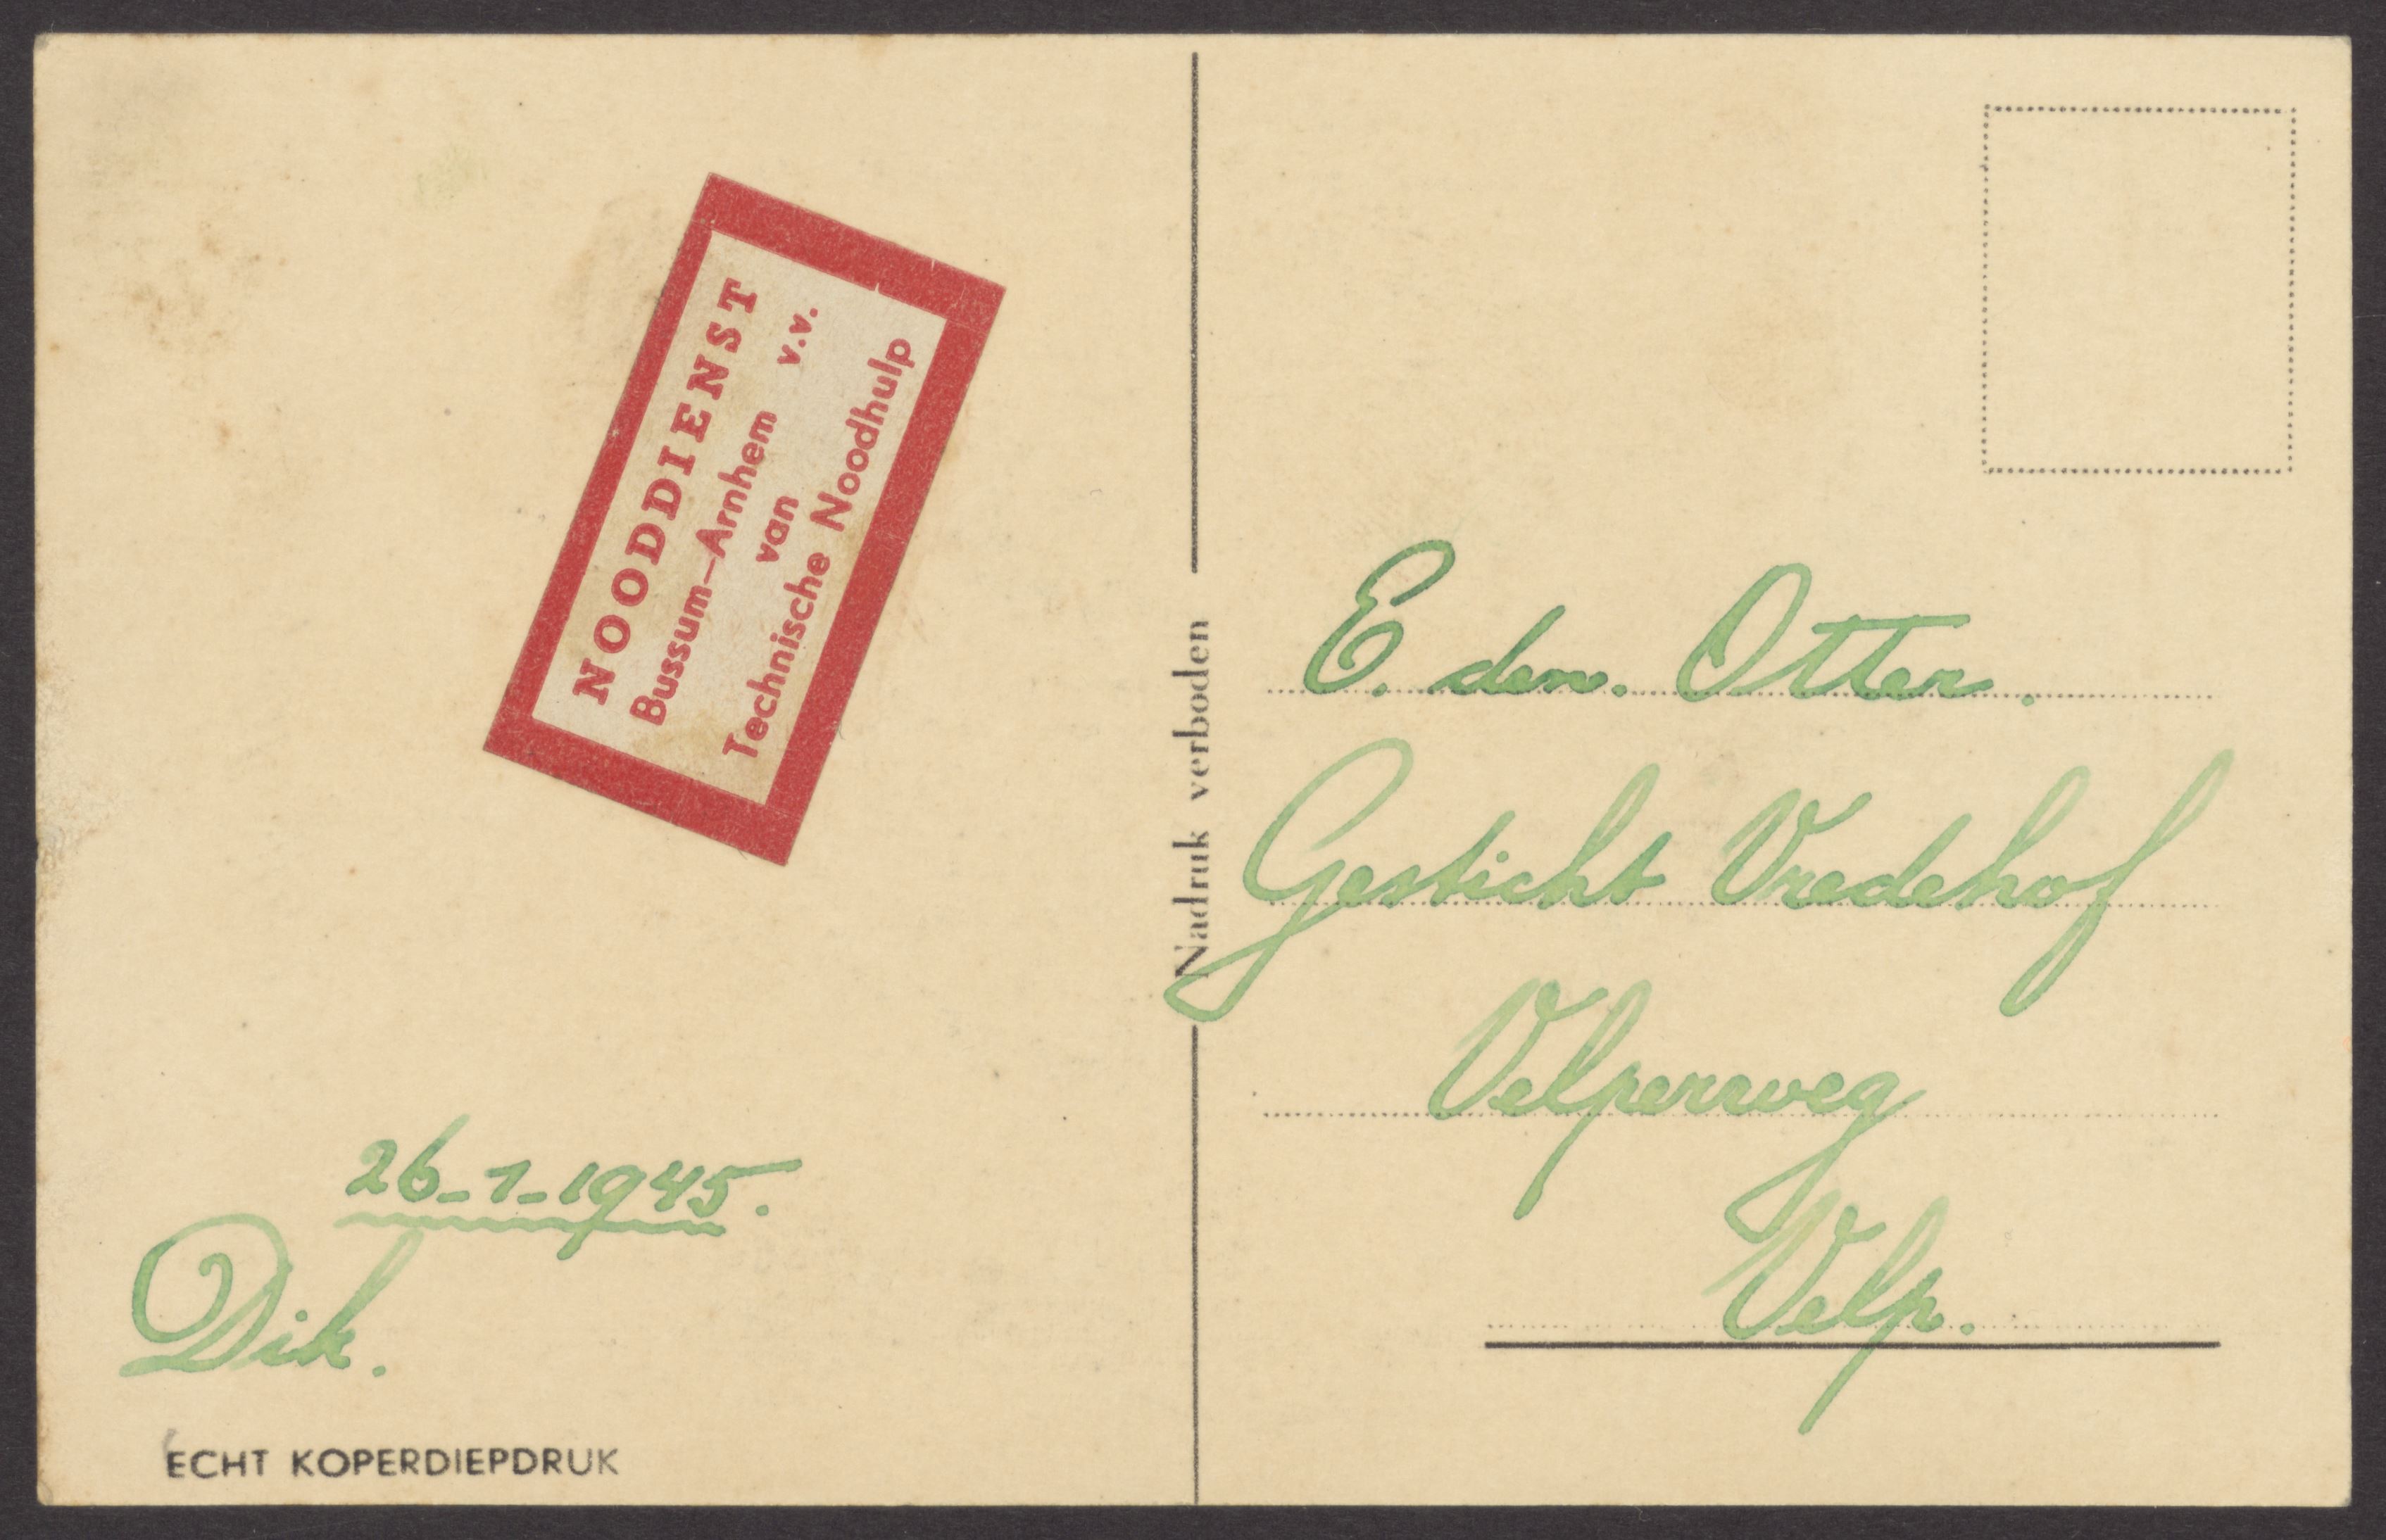 NOODDIENST
Bussum—Arnhem v.v.
van
Technische Noodhulp
26-1-1945.
Dik.
ECHT KOPERDIEPDRUK
Nadruk verboden
E. den. Otter.
Gesticht Vredehof
Velperweg
Velp.